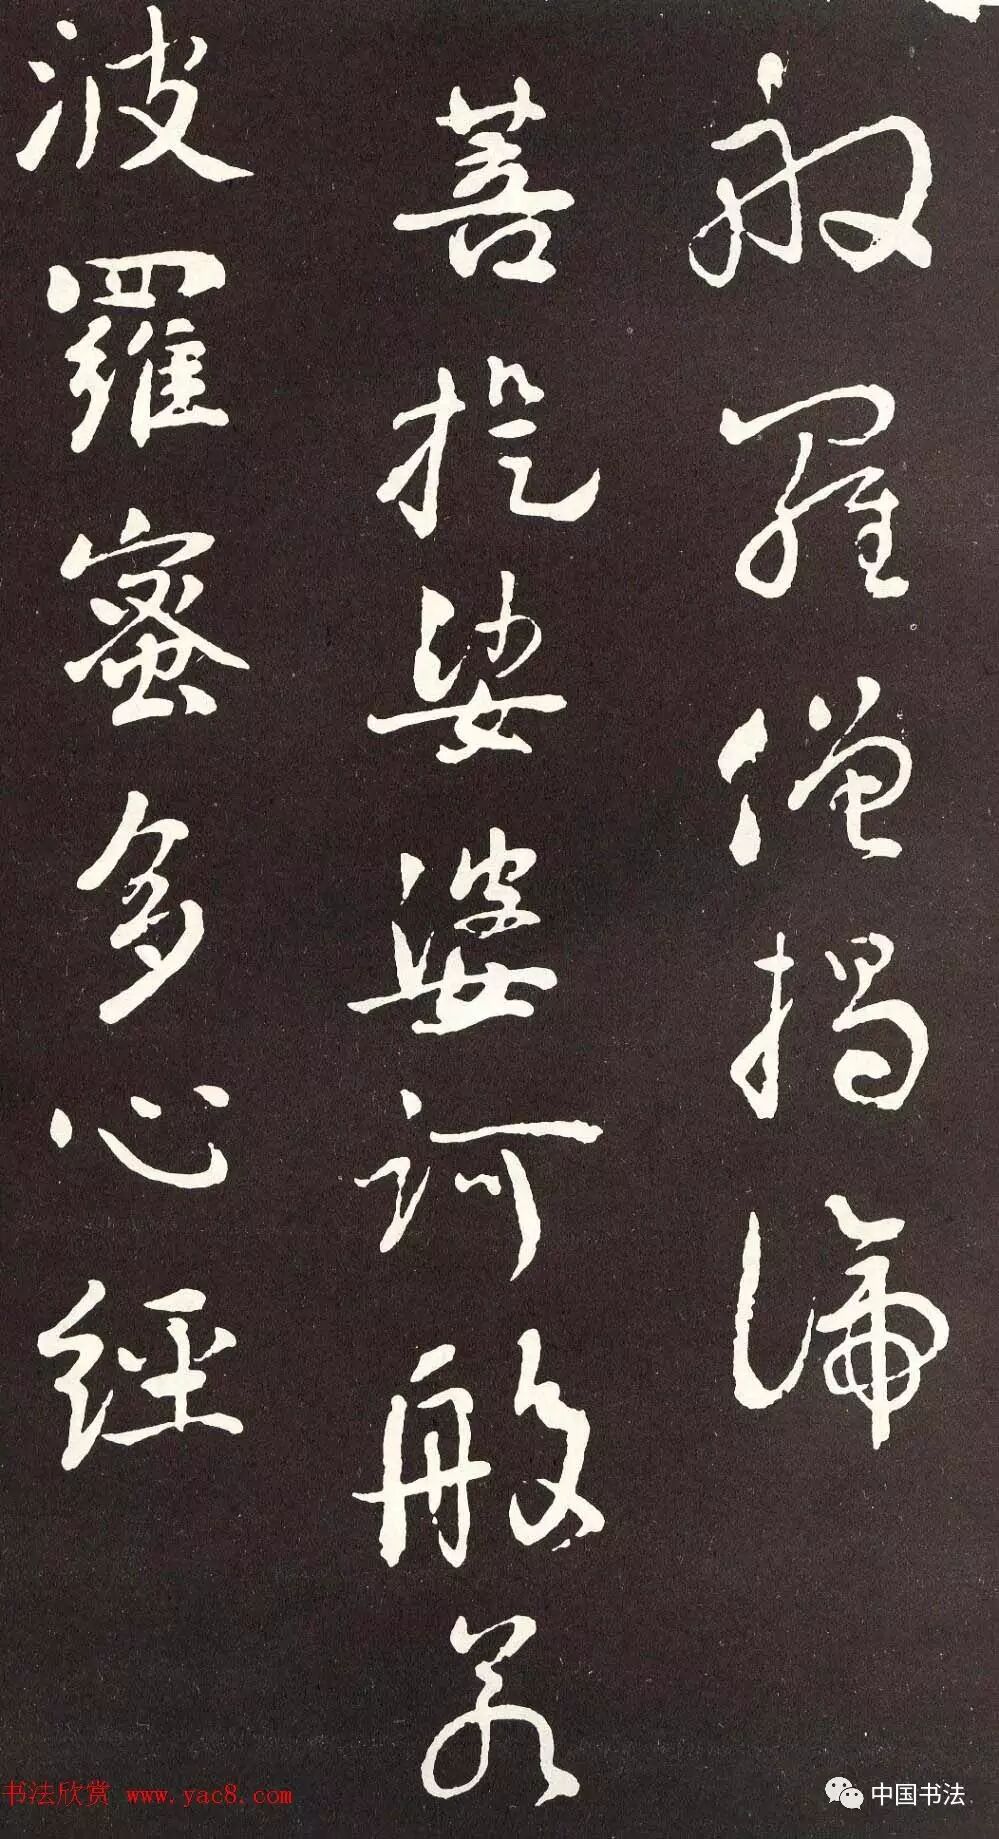 般羅僧揭諦
菩提娑婆訶般若
波羅蜜多心經
书法欣赏 www.yac8.com
中国书法